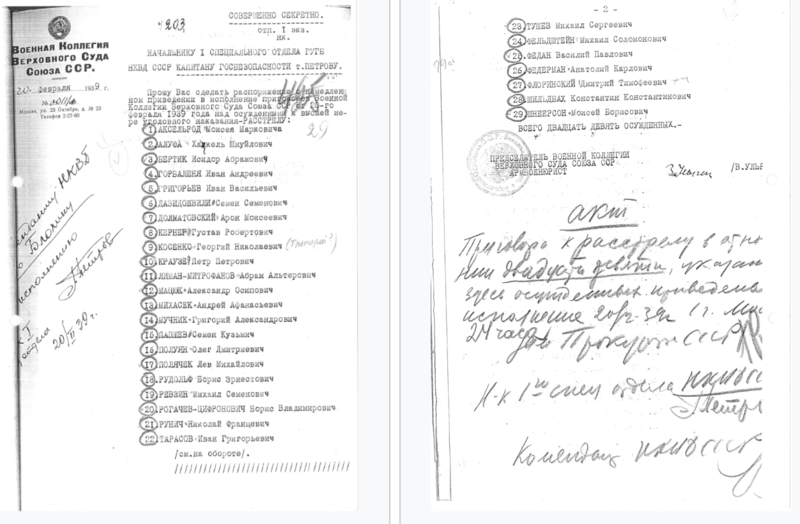 203
СОВЕРШЕННО СЕКРЕТНО.
отп. I экз.
нк.
ВОЕННАЯ КОЛЛЕГИЯ
ВЕРХОВНОГО СУДА
СОЮЗА ССР.
февраля 1939 г.
Москва, ул. 25 Октября, д. № 23
НАЧАЛЬНИКУ I СПЕЦИАЛЬНОГО ОТДЕЛА ГУГБ
НКВД СССР КАПИТАНУ ГОСБЕЗОПАСНОСТИ т.ПЕТРОВУ.
Прошу Вас сделать распоряжение о немедлен-
ном приведении в исполнение приговоров Военной
Коллегии Верховного Суда Союза ССР от 20-го
февраля 1939 года над осужденными к высшей ме-
ре уголовного наказания-РАССТРЕЛУ:
29
1 АКСЕЛЬРОД Моисея Марковича
2 АЛУФА Хацкель Шмуйлович
3 БЕРТИК Исидор Абрамович
4 ГОРБАЛЕНЯ Иван Андреевич
5 ГРИГОРЬЕВ Иван Васильевич
6 ДАВИДОШВИЛИ Семен Семенович
7 ДОЛМАТОВСКИЙ Арон Моисеевич
8 КЕРНЕР Густав Робертович
9 КОСЕНКО Георгий Николаевич
10 КРАУЗЕ Петр Петрович
11 ЛИМАН-МИТРОФАНОВ Абрам Альтерович
12 МАЦЮК Александр Осипович
13 МИХАСЕК Андрей Афанасьевич
14 МУЧНИК Григорий Александрович
15 ПАПИЕВ Семен Кузьмич
16 ПОЛУЯН Олег Дмитриевич
17 ПОЛЯЧЕК Лев Михайлович
18 РУДОЛЬФ Борис Эрнестович
19 РЕВЗИН Михаил Семенович
20 РОГАЧЕВ-ЦИФРОНОВИЧ Борис Владимирович
21 РУНИЧ Николай Францевич
22 ТАРАСОВ Иван Григорьевич
/см.на обороте/.
НКВД
Голохину
исполнению
Петров
20/II 39 г.
- 2 -
23 ТУНЕВ Михаил Сергеевич
24 ФЕЛЬДШТЕЙН Михаил Соломонович
25 ФЕДАН Василий Павлович
26 ФЕДЕРМАН Анатолий Карлович
27 ФЛОРИНСКИЙ Дмитрий Тимофеевич
28 ШИЛЬДБАХ Константин Константинович
29 ШНЕЕРСОН Моисей Борисович
ВСЕГО ДВАДЦАТЬ ДЕВЯТЬ ОСУЖДЕННЫХ.-
ПРЕДСЕДАТЕЛЬ ВОЕННОЙ КОЛЛЕГИИ
ВЕРХОВНОГО СУДА СОЮЗА ССР
АРМВОЕНЮРИСТ
/В.УЛЬР
акт
Приговора к расстрелу в отно
нии двадцати девяти, указан
здесь осужденных приведены
исполнение
24 часа
Прокурор СССР
Н-к 1го спец отдела НКВД СС
Петров
Комендант НКВД СССР